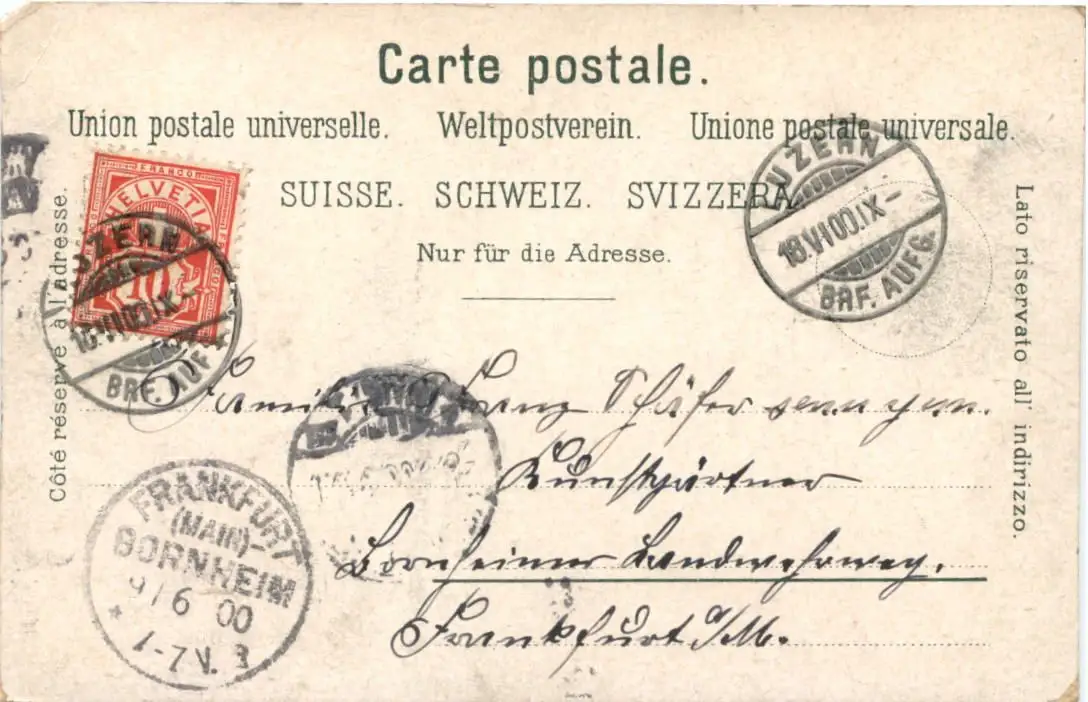 Carte postale.
Union postale universelle. Weltpostverein. Unione postale universale.
SUISSE. SCHWEIZ. SVIZZERA.
Nur für die Adresse.
Côté réservé à l'adresse.
Lato riservato all' indirizzo.
FRANCO
HELVETIA
10
LUZERN
18.VI.00.IX-
BRF. AUFG.
LUZERN
18.VI.00.IX-
BRF. AUFG.
Familie Franz Schäfer senn
Kunstgärtner
Bornheimer Landwehrweg.
Frankfurt a/M.
FRANKFURT
(MAIN)-
BORNHEIM
6 00